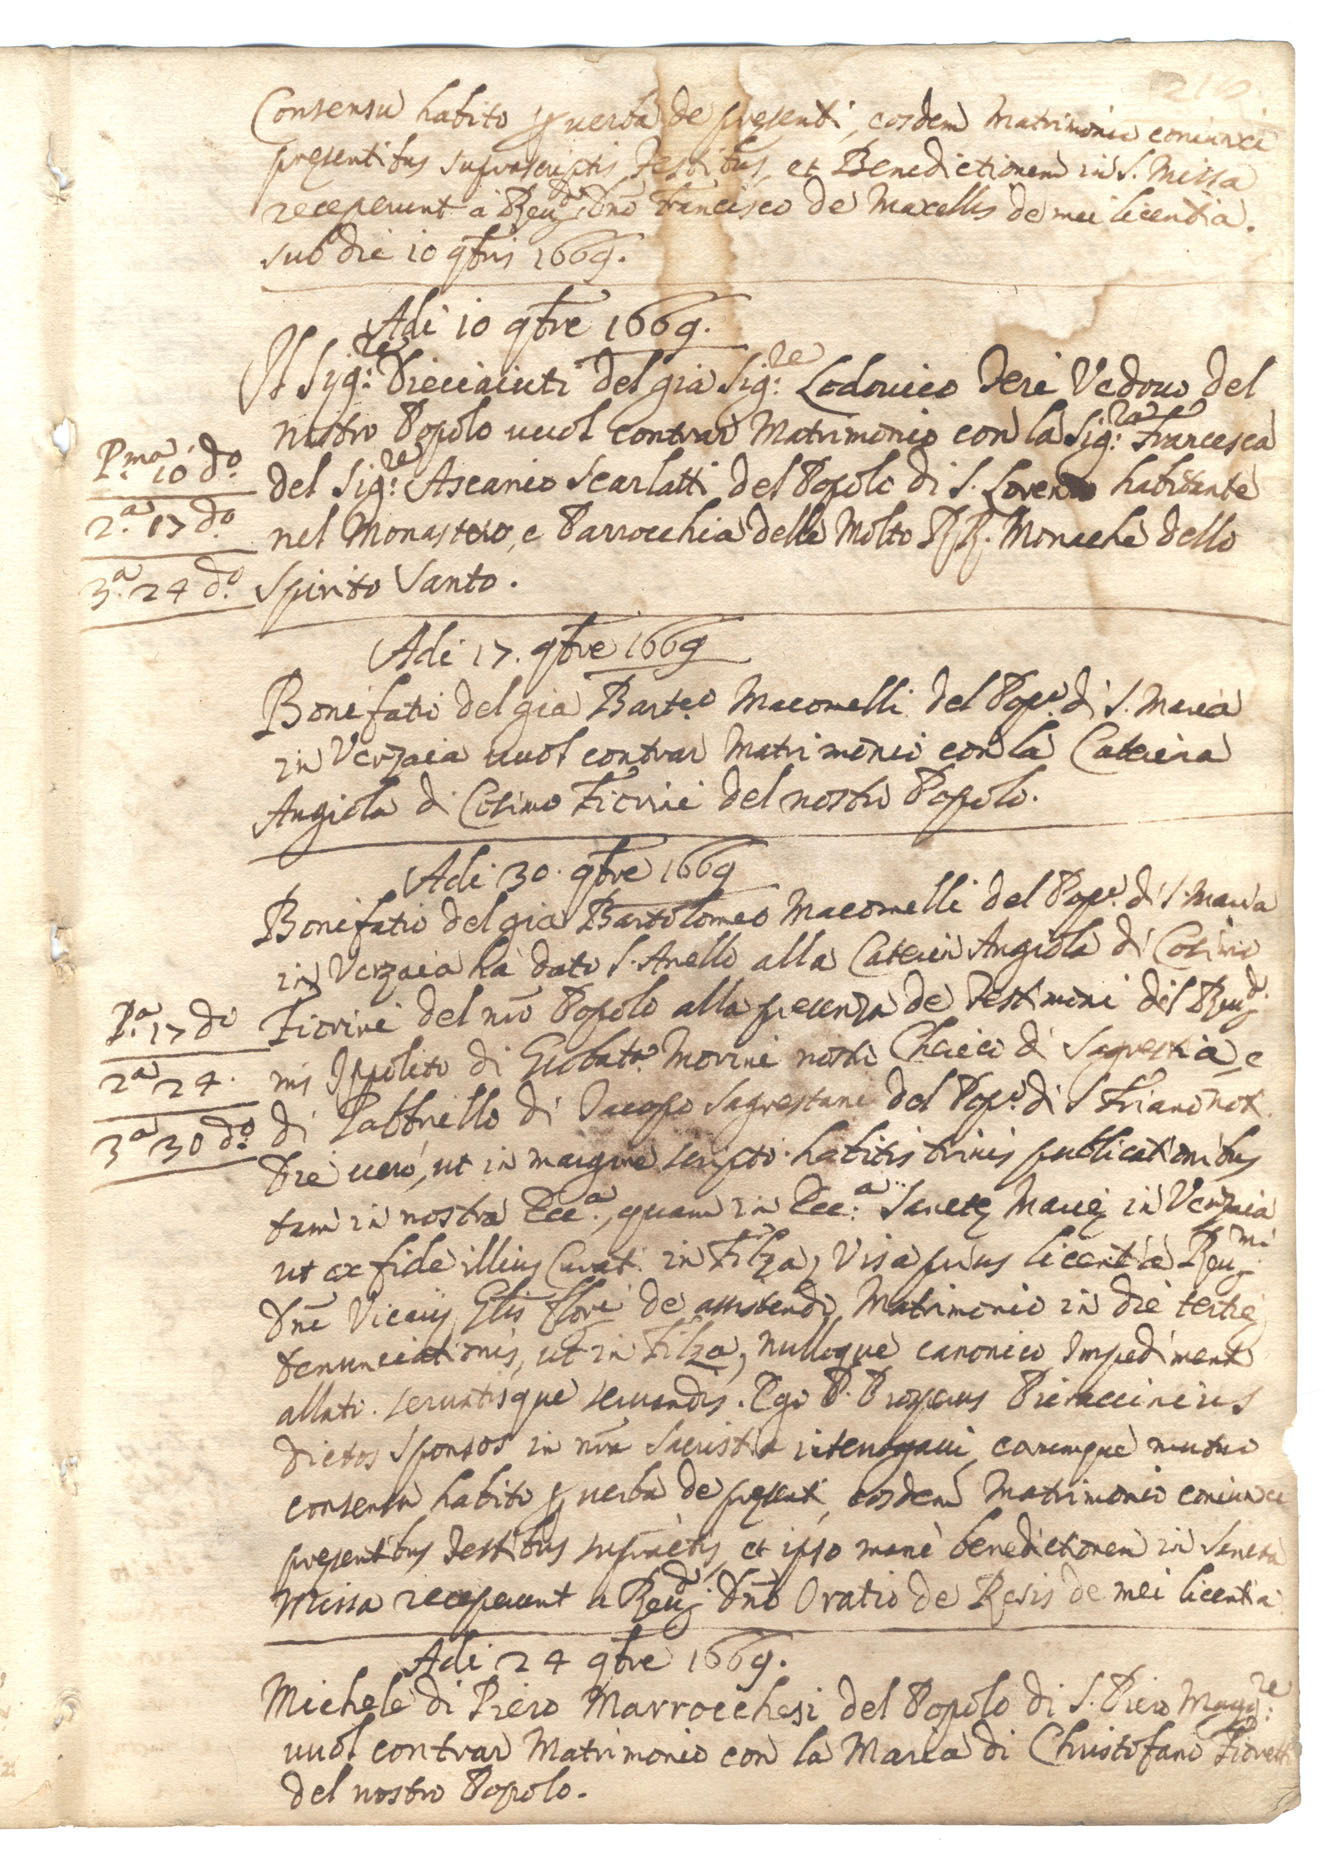 Consensu habito p verba de presenti, eosdem Matrimonio coniunxi
presentibus suprascriptis Testibus, et Benedictionem in S. Missa
receperunt à Reud. Dno Francisco de Macellis de mei licentia.
sub die 10 9bris 1669.
Adi 10 9bre 1669.
Il Sig.re Dieciaiuti del già Sig.re Lodovico Neri Vedovo del
nostro Popolo vuol contrar Matrimonio con la Sig.ra Francesca
Pma 10 do.
del Sig.re Ascanio Scarlatti del Popolo di S. Lorenzo habitante
2.a 17 do.
nel Monastero, e Parrocchia delle Molto RR. Monache dello
3.a 24 do.
Spirito Santo.
Adi 17. 9bre 1669
Bonifatio del già Barteo Macomelli del Popo. di S. Maria
in Verzaia vuol contrar Matrimonio con la Caterina
Angiola di Cosimo Fiorini del nostro Popolo.
Adi 30. 9bre 1669
Bonifatio del già Bartolomeo Macomelli del Popo. di S. Maria
in Verzaia hà dato l'Anello alla Caterin Angiola di Cosimo
P.a 17 do
Fiorini del nro Popolo alla presenza de Testimoni del Reud.
2a 24.
Ippolito di Giobata. Morini nostro Chierico di Sagrestia, e
3a 30 do.
di Jacopo Sagrestani del Popo. di S Friano
Die vero, ut in margine scripto habitis trinis publicationibus
tam in nostra Ecc.a, quam in Ecc.a Sancte Marie in Verzaia
ut ex fide illius Curat. in Filza, Visa prius licentia Reu.mi
Dni Vicarij Glis Flori de assistendo Matrimonio in die tertie
denunciationis, ut in Filza, nulloque canonico Impediment
allato. servatisque servandis. Ego P. Prosperus Pieraccinius
dictos sponsos in nra Sacristia interrogavi, eorumque mutuo
consensu habito p verba de presenti, eosdem Matrimonio coniunxi
presentibus Testibus supradictis, et ipso mane benedictionem in Sancta
Missa receperunt a Reud. Dno Oratio de Resis de mei licentia
Adi 24 9bre 1669.
Michele di Piero Marrocchesi del Popolo di S. Piero Magg.re
vuol contrar Matrimonio con la Maria di Christofano
del nostro Popolo.